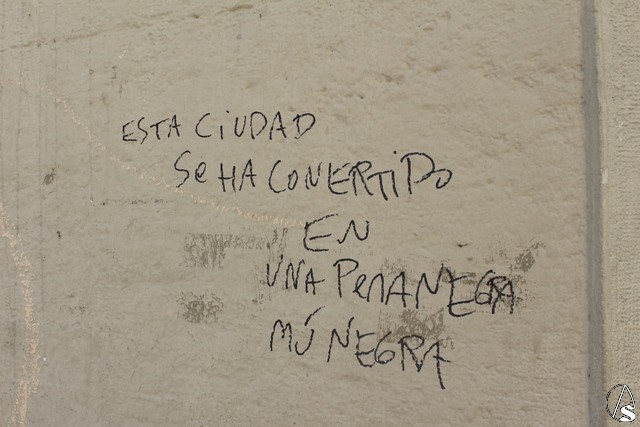 ESTA CiUDAD
Se HA CONERTiDo
EN
UNA PeNA NEGRA
MÚ NEGRA